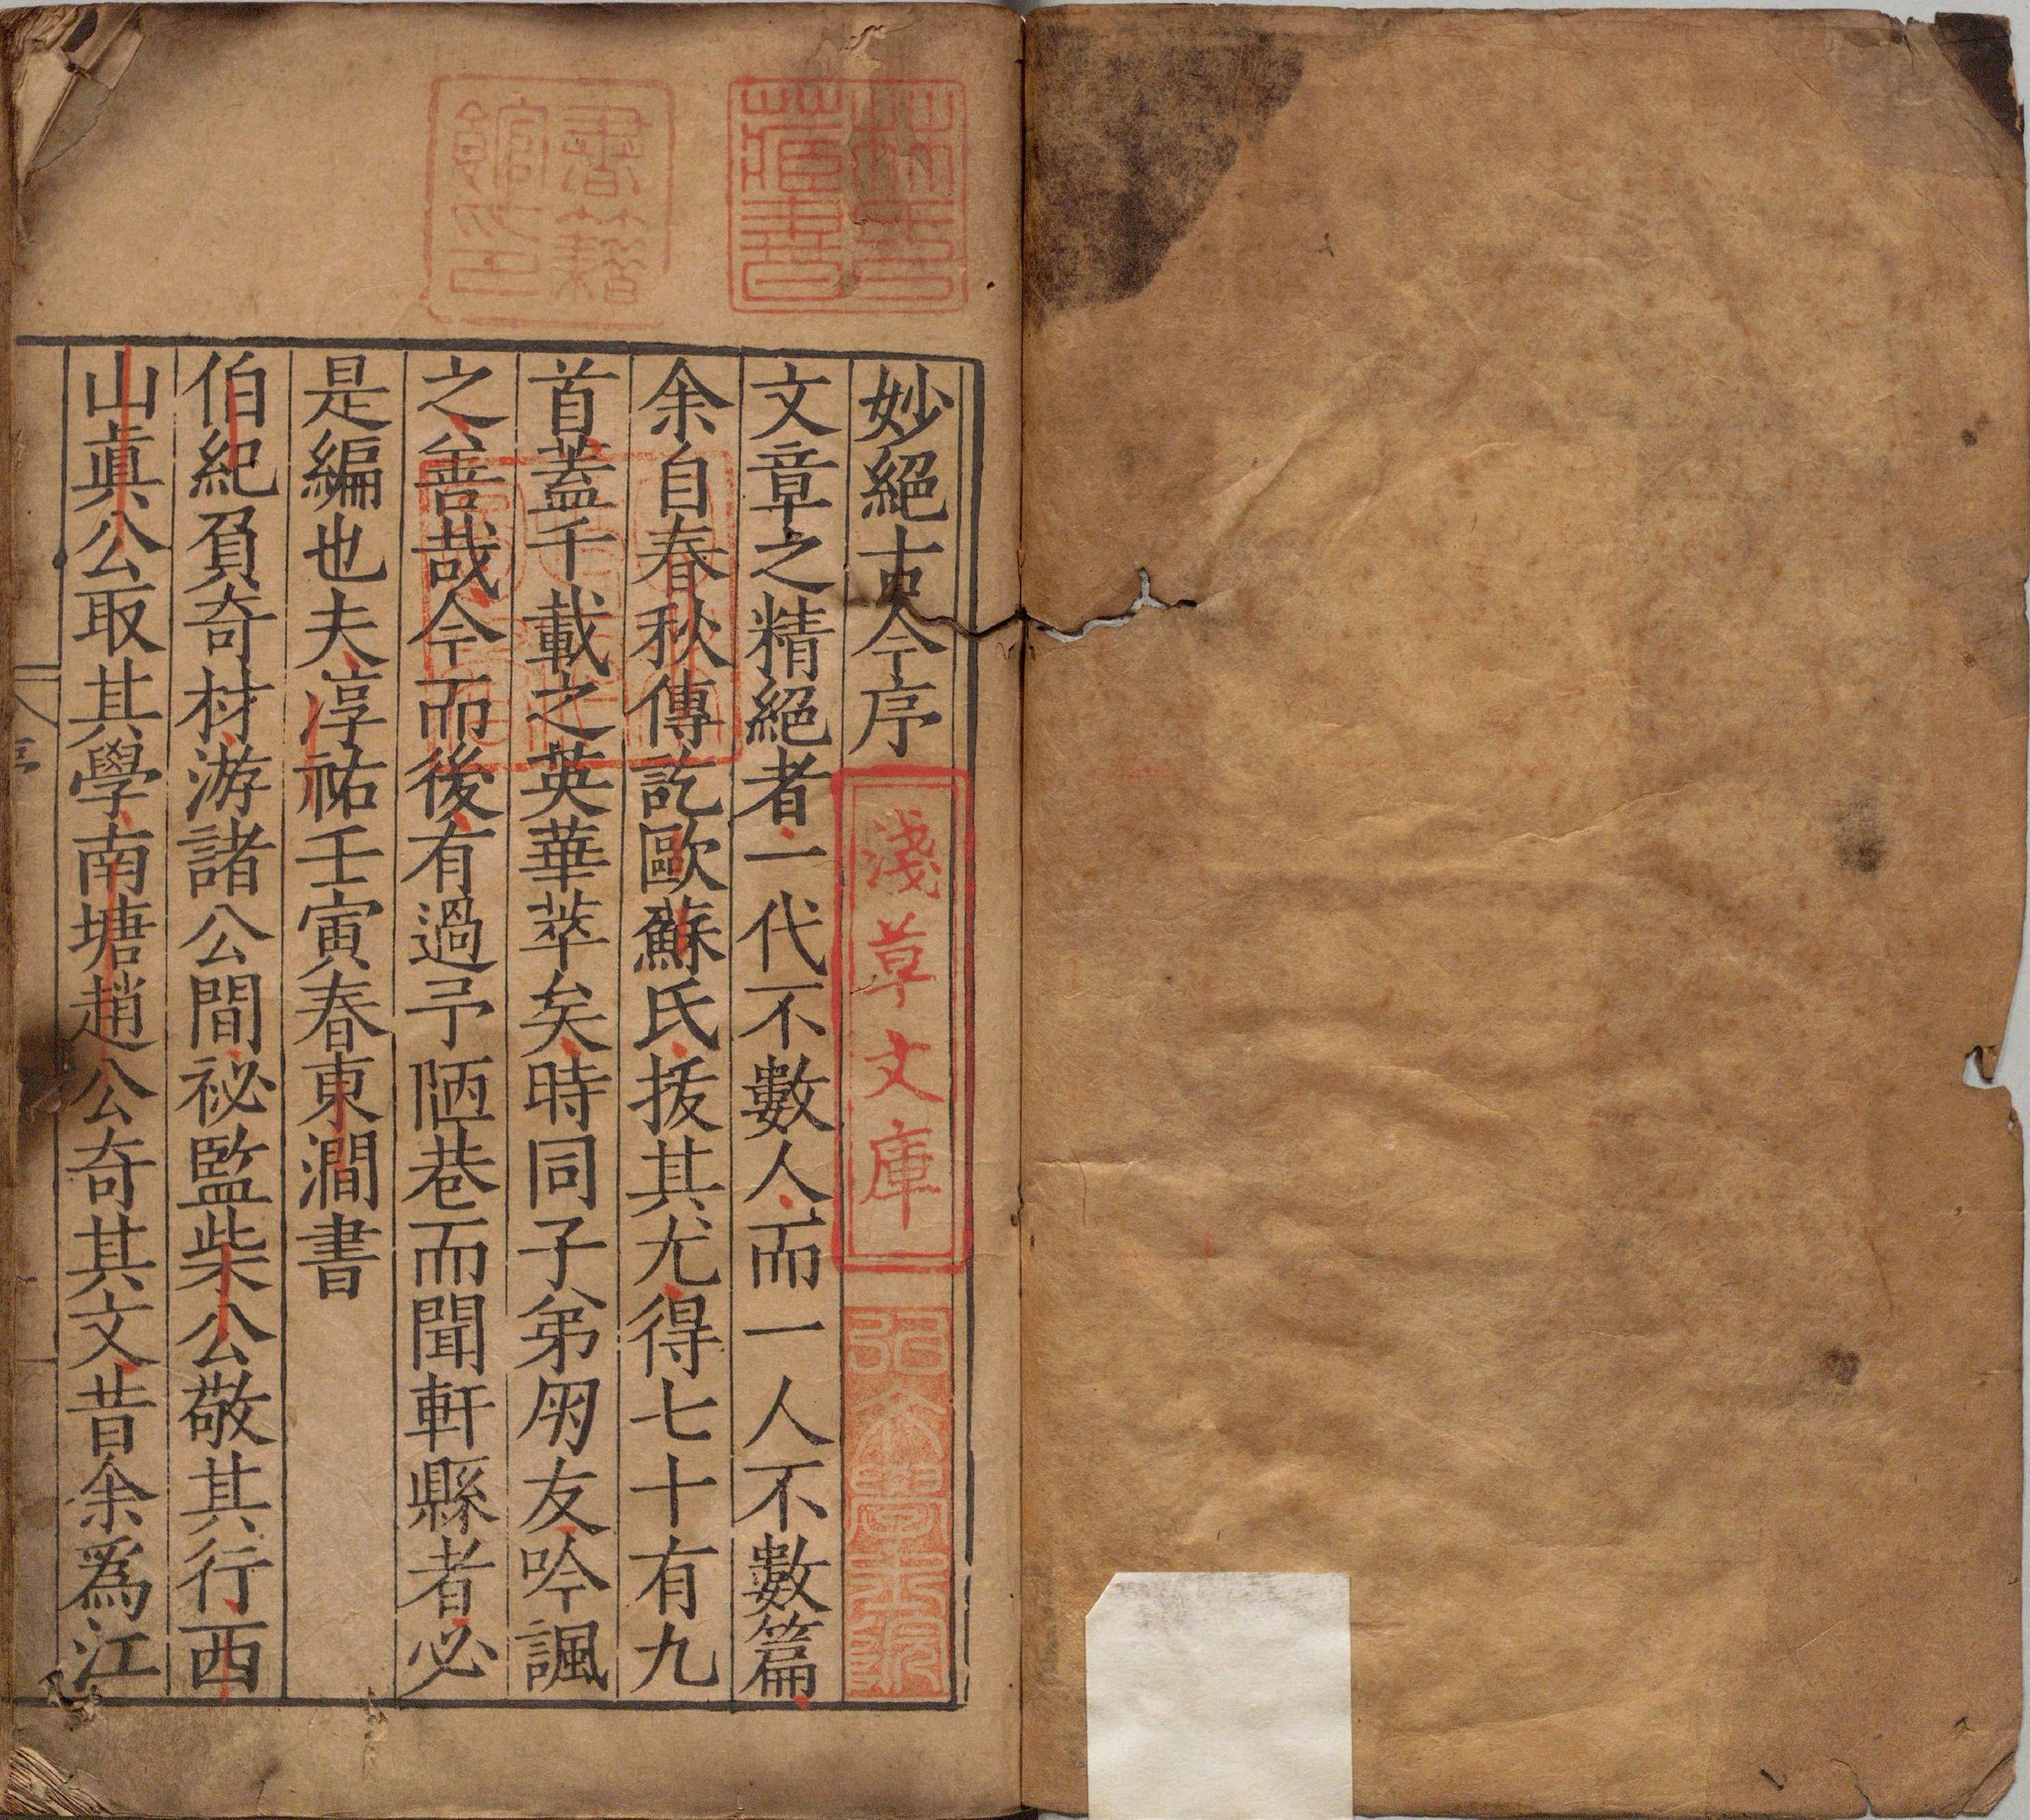 妙絕古今序
文章之精絕者一代不數人而一人不數篇
余自春秋傳訖歐蘇氏拔其尤得七十有九
首蓋千載之英華萃矣時同子弟朋友吟諷
之善哉今而後有過予陋巷而聞軒縣者必
是編也夫淳祐壬寅春東澗書
伯紀負奇材游諸公間祕監柴公敬其行西
山眞公取其學南塘趙公奇其文昔余爲江
林氏
藏書
書籍
館印
淺草文庫